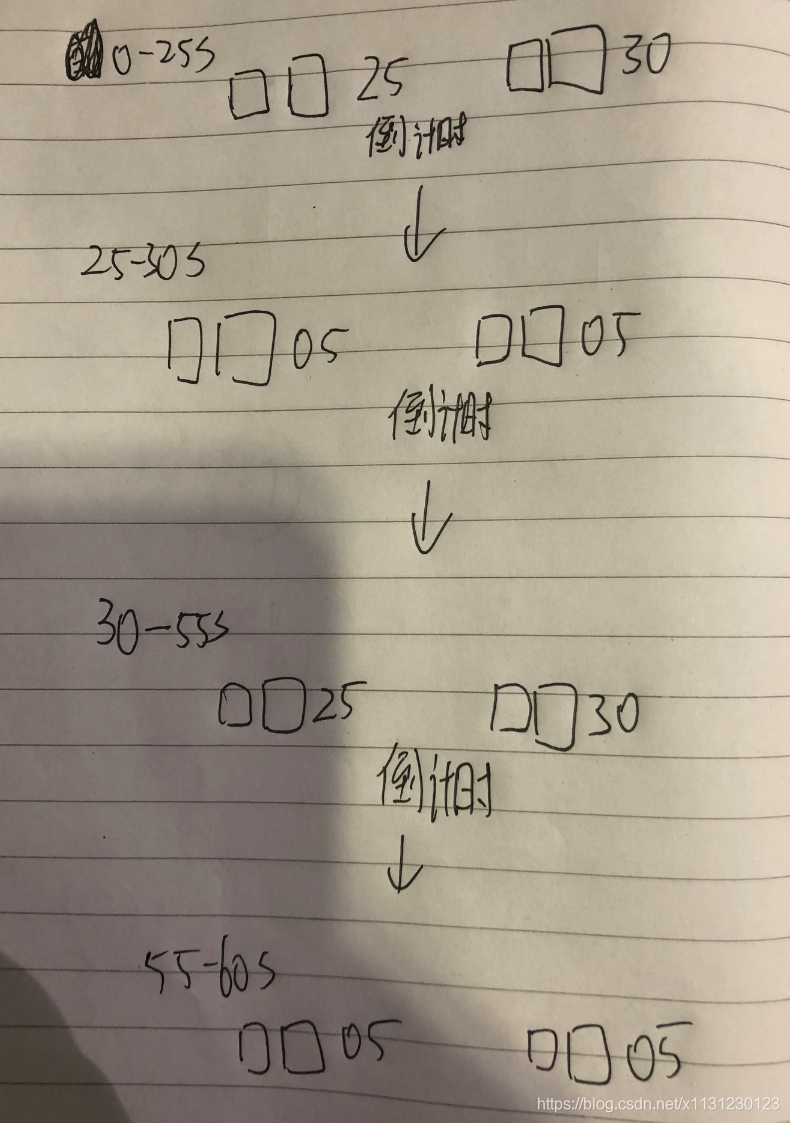 0-25s
□□ 25 □□ 30
倒计时
↓
25-30s
□□ 05 □□ 05
倒计时
↓
30-55s
□□ 25 □□ 30
倒计时
↓
55-60s
□□ 05 □□ 05
https://blog.csdn.net/x1131230123